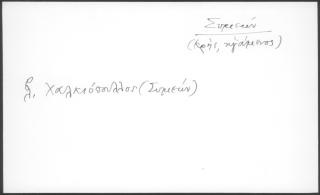 Συμεών
(κρής, ἡγούμενος)
βλ. Χαλκιόπουλλος (Συμεών)